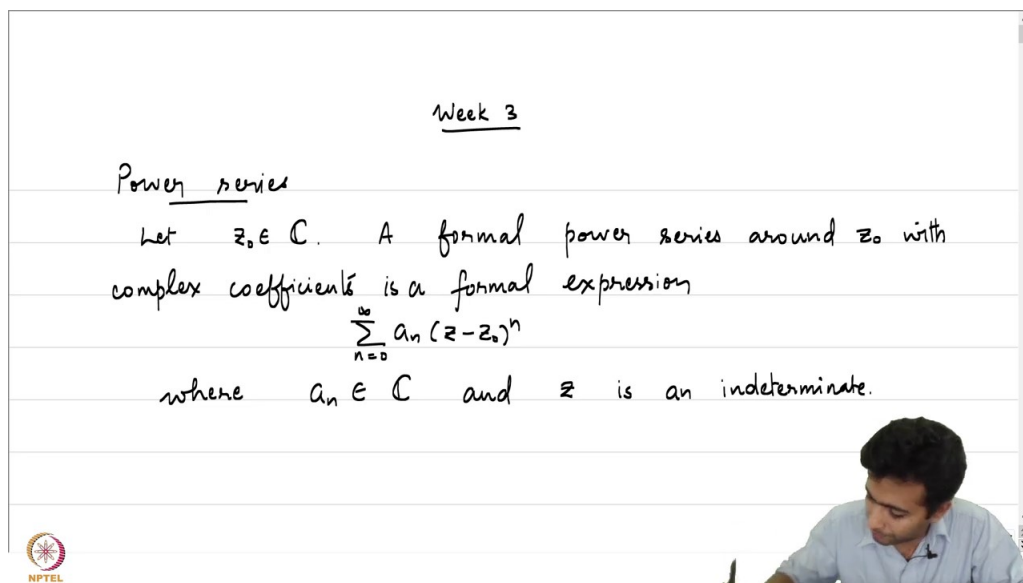 Week 3
Power series
Let z₀ ∈ ℂ. A formal power series around z₀ with
complex coefficients is a formal expression
∑_{n=0}^{∞} aₙ (z-z₀)ⁿ
where aₙ ∈ ℂ and z is an indeterminate.
NPTEL